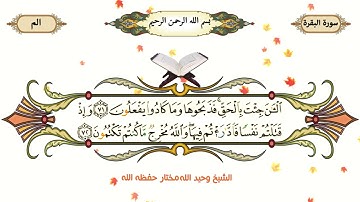 سورة البقرة
بسم الله الرحمن الرحيم
الم
الْـَٰٔنَ جِئْتَ بِالْحَقِّ فَذَبَحُوهَا وَمَا كَادُوا يَفْعَلُونَ ٧١ وَإِذْ
قَتَلْتُمْ نَفْسًا فَادَّارَأْتُمْ فِيهَا وَاللَّهُ مُخْرِجٌ مَا كُنْتُمْ تَكْتُمُونَ ٧٢
الشيخ وحيد الله مختار حفظه الله